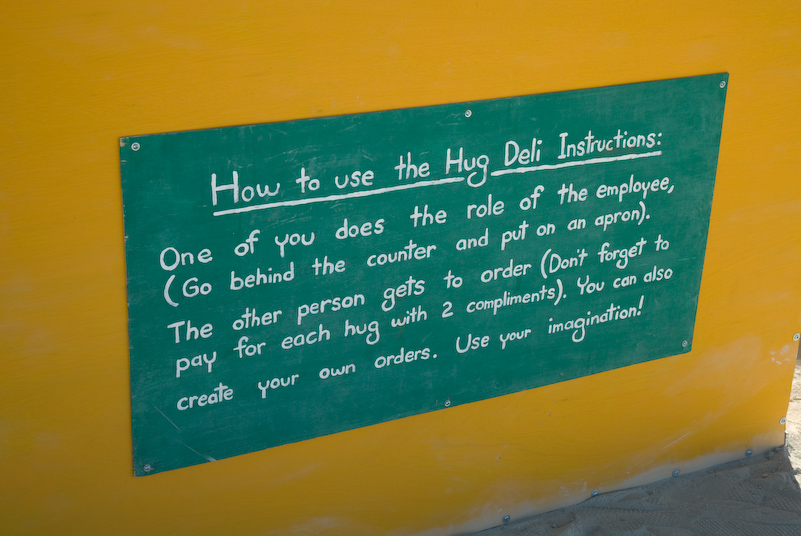 How to use the Hug Deli Instructions:
One of you does the role of the employee,
(Go behind the counter and put on an apron).
The other person gets to order (Don't forget to
pay for each hug with 2 compliments). You can also
create your own orders. Use your imagination!